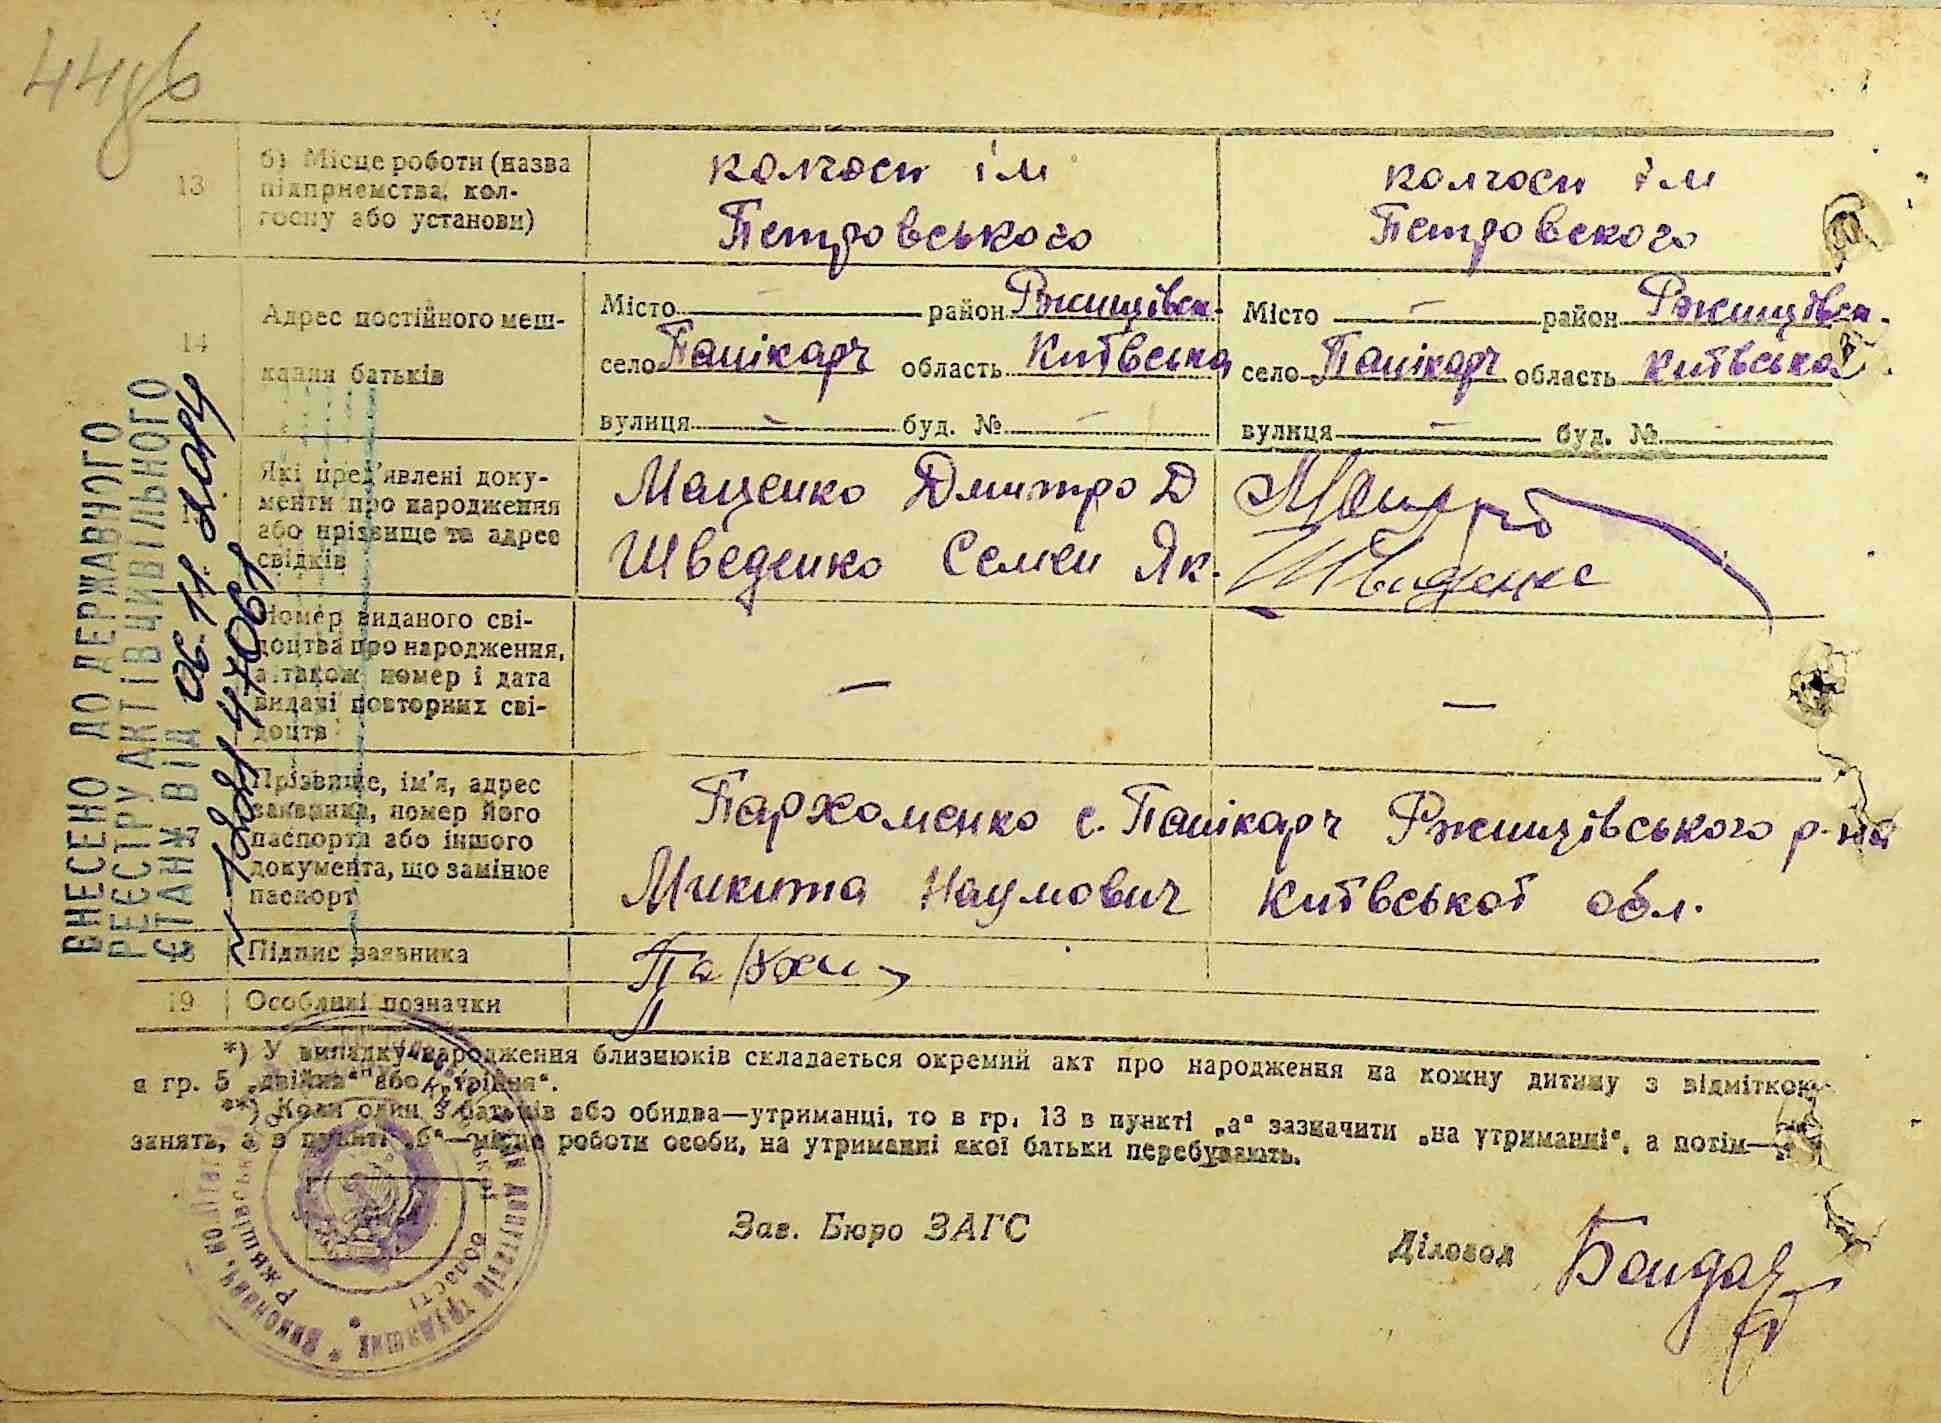 44зв
13
б) Місце роботи (назва
підприємства, кол-
госпу або установи)
колгосп ім
Петровського
колгосп ім
Петровского
14
Адрес постійного меш-
кання батьків
Місто — район Ржищівськ.
село Пашікарч область Київська
вулиця — буд. № —
Місто — район Ржищівськ.
село Пашікарч область Київська
вулиця — буд. №
Які пред'явлені доку-
менти про народження
або прізвище та адрес
свідків
Маценко Дмитро Д
Шведенко Семен Як.
Шведенко
Номер виданого сві-
доцтва про народження,
а також номер і дата
видачі повторних сві-
доцтв
—
—
Прізвище, ім'я, адрес
заявника, номер його
паспорта або іншого
документа, що замінює
паспорт
Пархоменко с. Пашікарч Ржищівського р-на
Микита Наумович Київської обл.
18
Підпис заявника
19
Особливі позначки
*) У випадку народження близнюків складається окремий акт про народження на кожну дитину з відміткою
в гр. 5 „двійня“ або „трійня“.
**) Коли один з батьків або обидва—утриманці, то в гр. 13 в пункті „а“ зазначити „на утриманні“, а потім—
занять, а в пункті „б“—місце роботи особи, на утриманні якої батьки перебувають.
Зав. Бюро ЗАГС
Діловод
ВНЕСЕНО ДО ДЕРЖАВНОГО
РЕЄСТРУ АКТІВ ЦИВІЛЬНОГО
СТАНУ ВІД 06.11.2014
Виконавч. комітет
депутатів трудящих
Ржищівськ
області